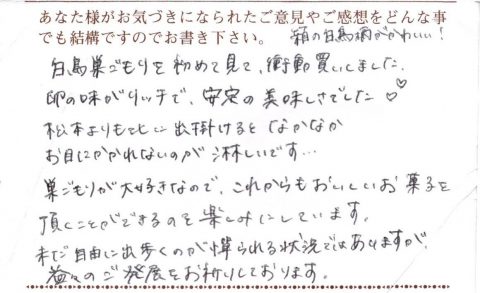 あなた様がお気づきになられたご意見やご感想をどんな事
でも結構ですのでお書き下さい。
箱の白鳥柄がかわいい!
白鳥巣ごもりを初めて見て、衝動買いしました。
卵の味がリッチで、安定の美味しさでした♡♡
松本よりも北に出掛けると なかなか
お目にかかれないのが淋しいです…
巣ごもりが大好きなので、これからもおいしいお菓子を
頂くことができるのを楽しみにしています。
まだ自由に出歩くのが憚られる状況ではありますが、
益々のご発展をお祈りしております。